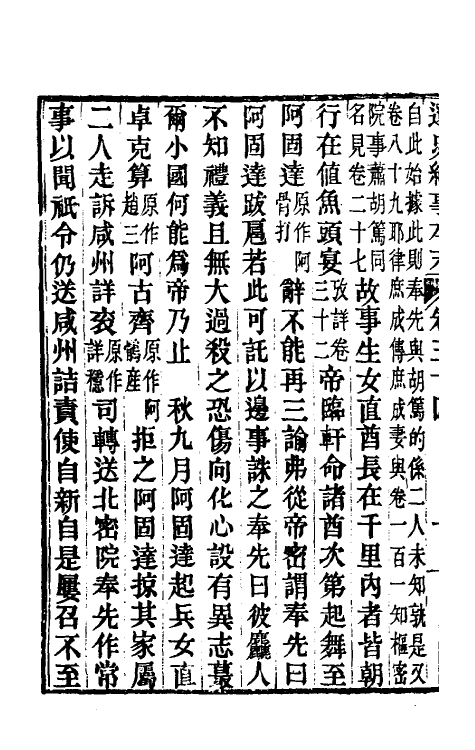 自此始據此則奉先與胡篤的係二人未知孰是又
卷八十九耶律庶成傳庶成妻與卷一百一知樞密
院事蕭胡篤同
名見卷二十七故事生女直酋長在千里內者皆朝
行在值魚頭宴攷詳卷三十二帝臨軒命諸酋次第起舞至
阿固達原作阿骨打辭不能再三諭弗從帝密謂奉先曰
阿固達跋扈若此可託以邊事誅之奉先曰彼麤人
不知禮義且無大過殺之恐傷向化心設有異志蕞
爾小國何能爲帝乃止　秋九月阿固達起兵女直
卓克算原作趙三阿古齊原作阿鶻產拒之阿固達掠其家屬
二人走訴咸州詳袞原作詳穩司轉送北密院奉先作常
事以聞祇令仍送咸州詰責使自新自是屢召不至